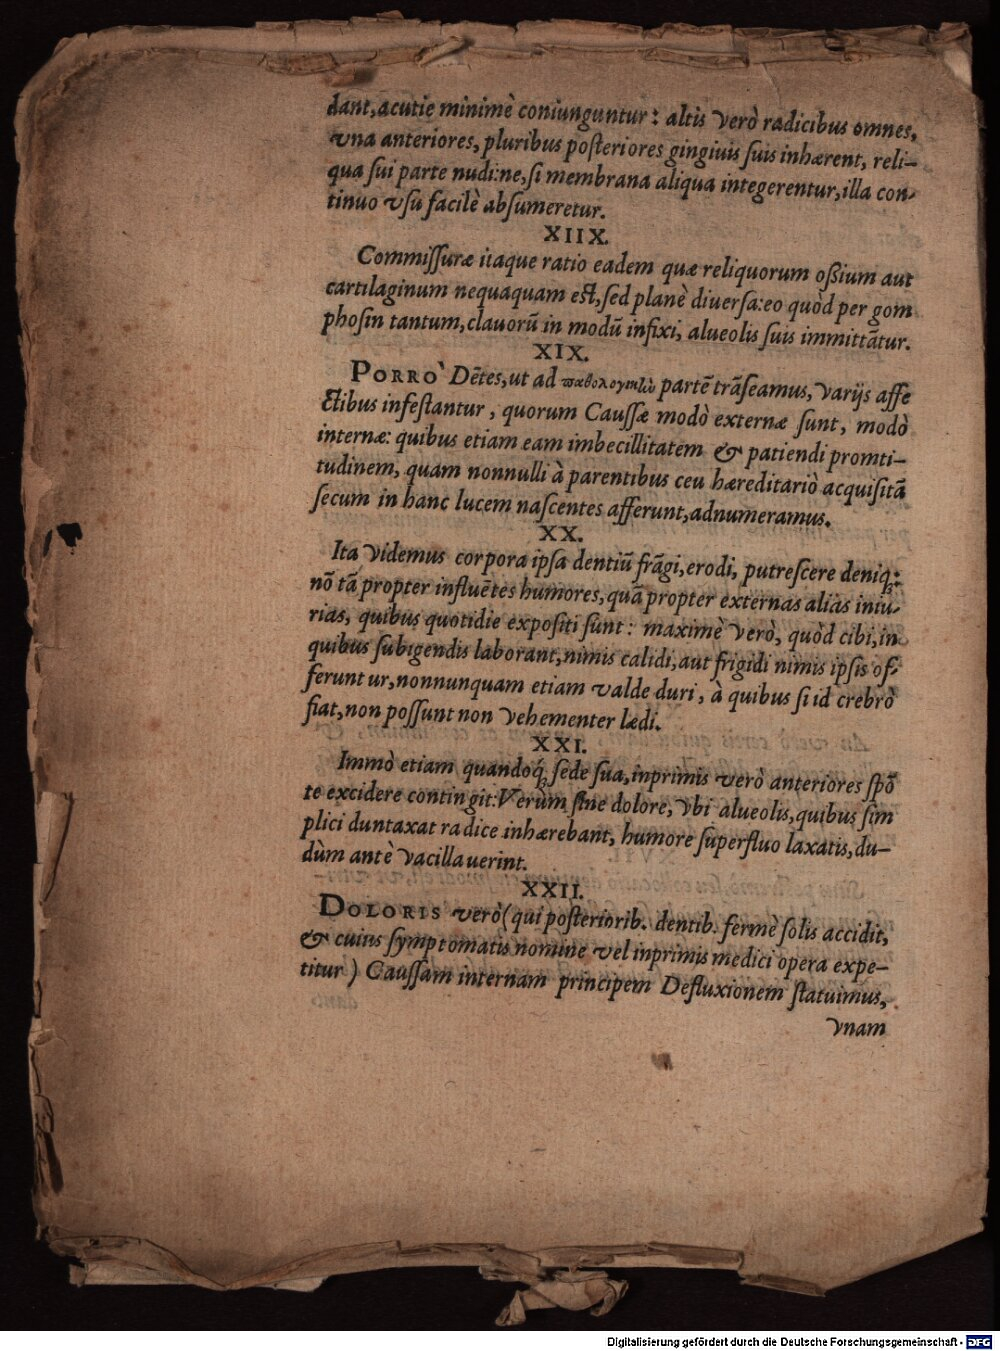 dant, acutie minimè coniunguntur: altis verò radicibus omnes,
vna anteriores, pluribus posteriores gingiuis suis inhærent, reli-
qua sui parte nudi: ne, si membrana aliqua integerentur, illa con-
tinuo vsu facilè absumeretur.
XIIX.
Commissuræ itaque ratio eadem quæ reliquorum ossium aut
cartilaginum nequaquam est, sed planè diuersa: eo quòd per gom
phosin tantum, clauorũ in modũ infixi, alueolis suis immittãtur.
XIX.
PORRO` Dẽtes, ut ad παθολογικὼ partẽ trãseamus, varijs affe
ctibus infestantur, quorum Caussæ modò externæ sunt, modò
internæ: quibus etiam eam imbecillitatem & patiendi promti-
tudinem, quam nonnulli à parentibus ceu hæreditariò acquisitã
secum in hanc lucem nascentes afferunt, adnumeramus.
XX.
Ita videmus corpora ipsa dentiũ frãgi, erodi, putrescere deniq;:
nõ tã propter influẽtes humores, quã propter externas alias iniu-
rias, quibus quotidie expositi sunt: maximè verò, quòd cibi, in
quibus subigendis laborant, nimis calidi, aut frigidi nimis ipsis of-
feruntur, nonnunquam etiam valde duri, à quibus si id crebrò
fiat, non possunt non vehementer lædi.
XXI.
Immò etiam quandoq́; sede sua, inprimis verò anteriores spõ
te excidere contingit: Verùm sine dolore, vbi alueolis, quibus sim
plici duntaxat radice inhærebant, humore superfluo laxatis, du-
dùm antè vacillauerint.
XXII.
DOLORIS verò (qui posteriorib. dentib. fermè solis accidit,
& cuius symptomatis nomine vel inprimis medici opera expe-
titur) Caussam internam principem Defluxionem statuimus,
vnam
Digitalisierung gefördert durch die Deutsche Forschungsgemeinschaft - DFG